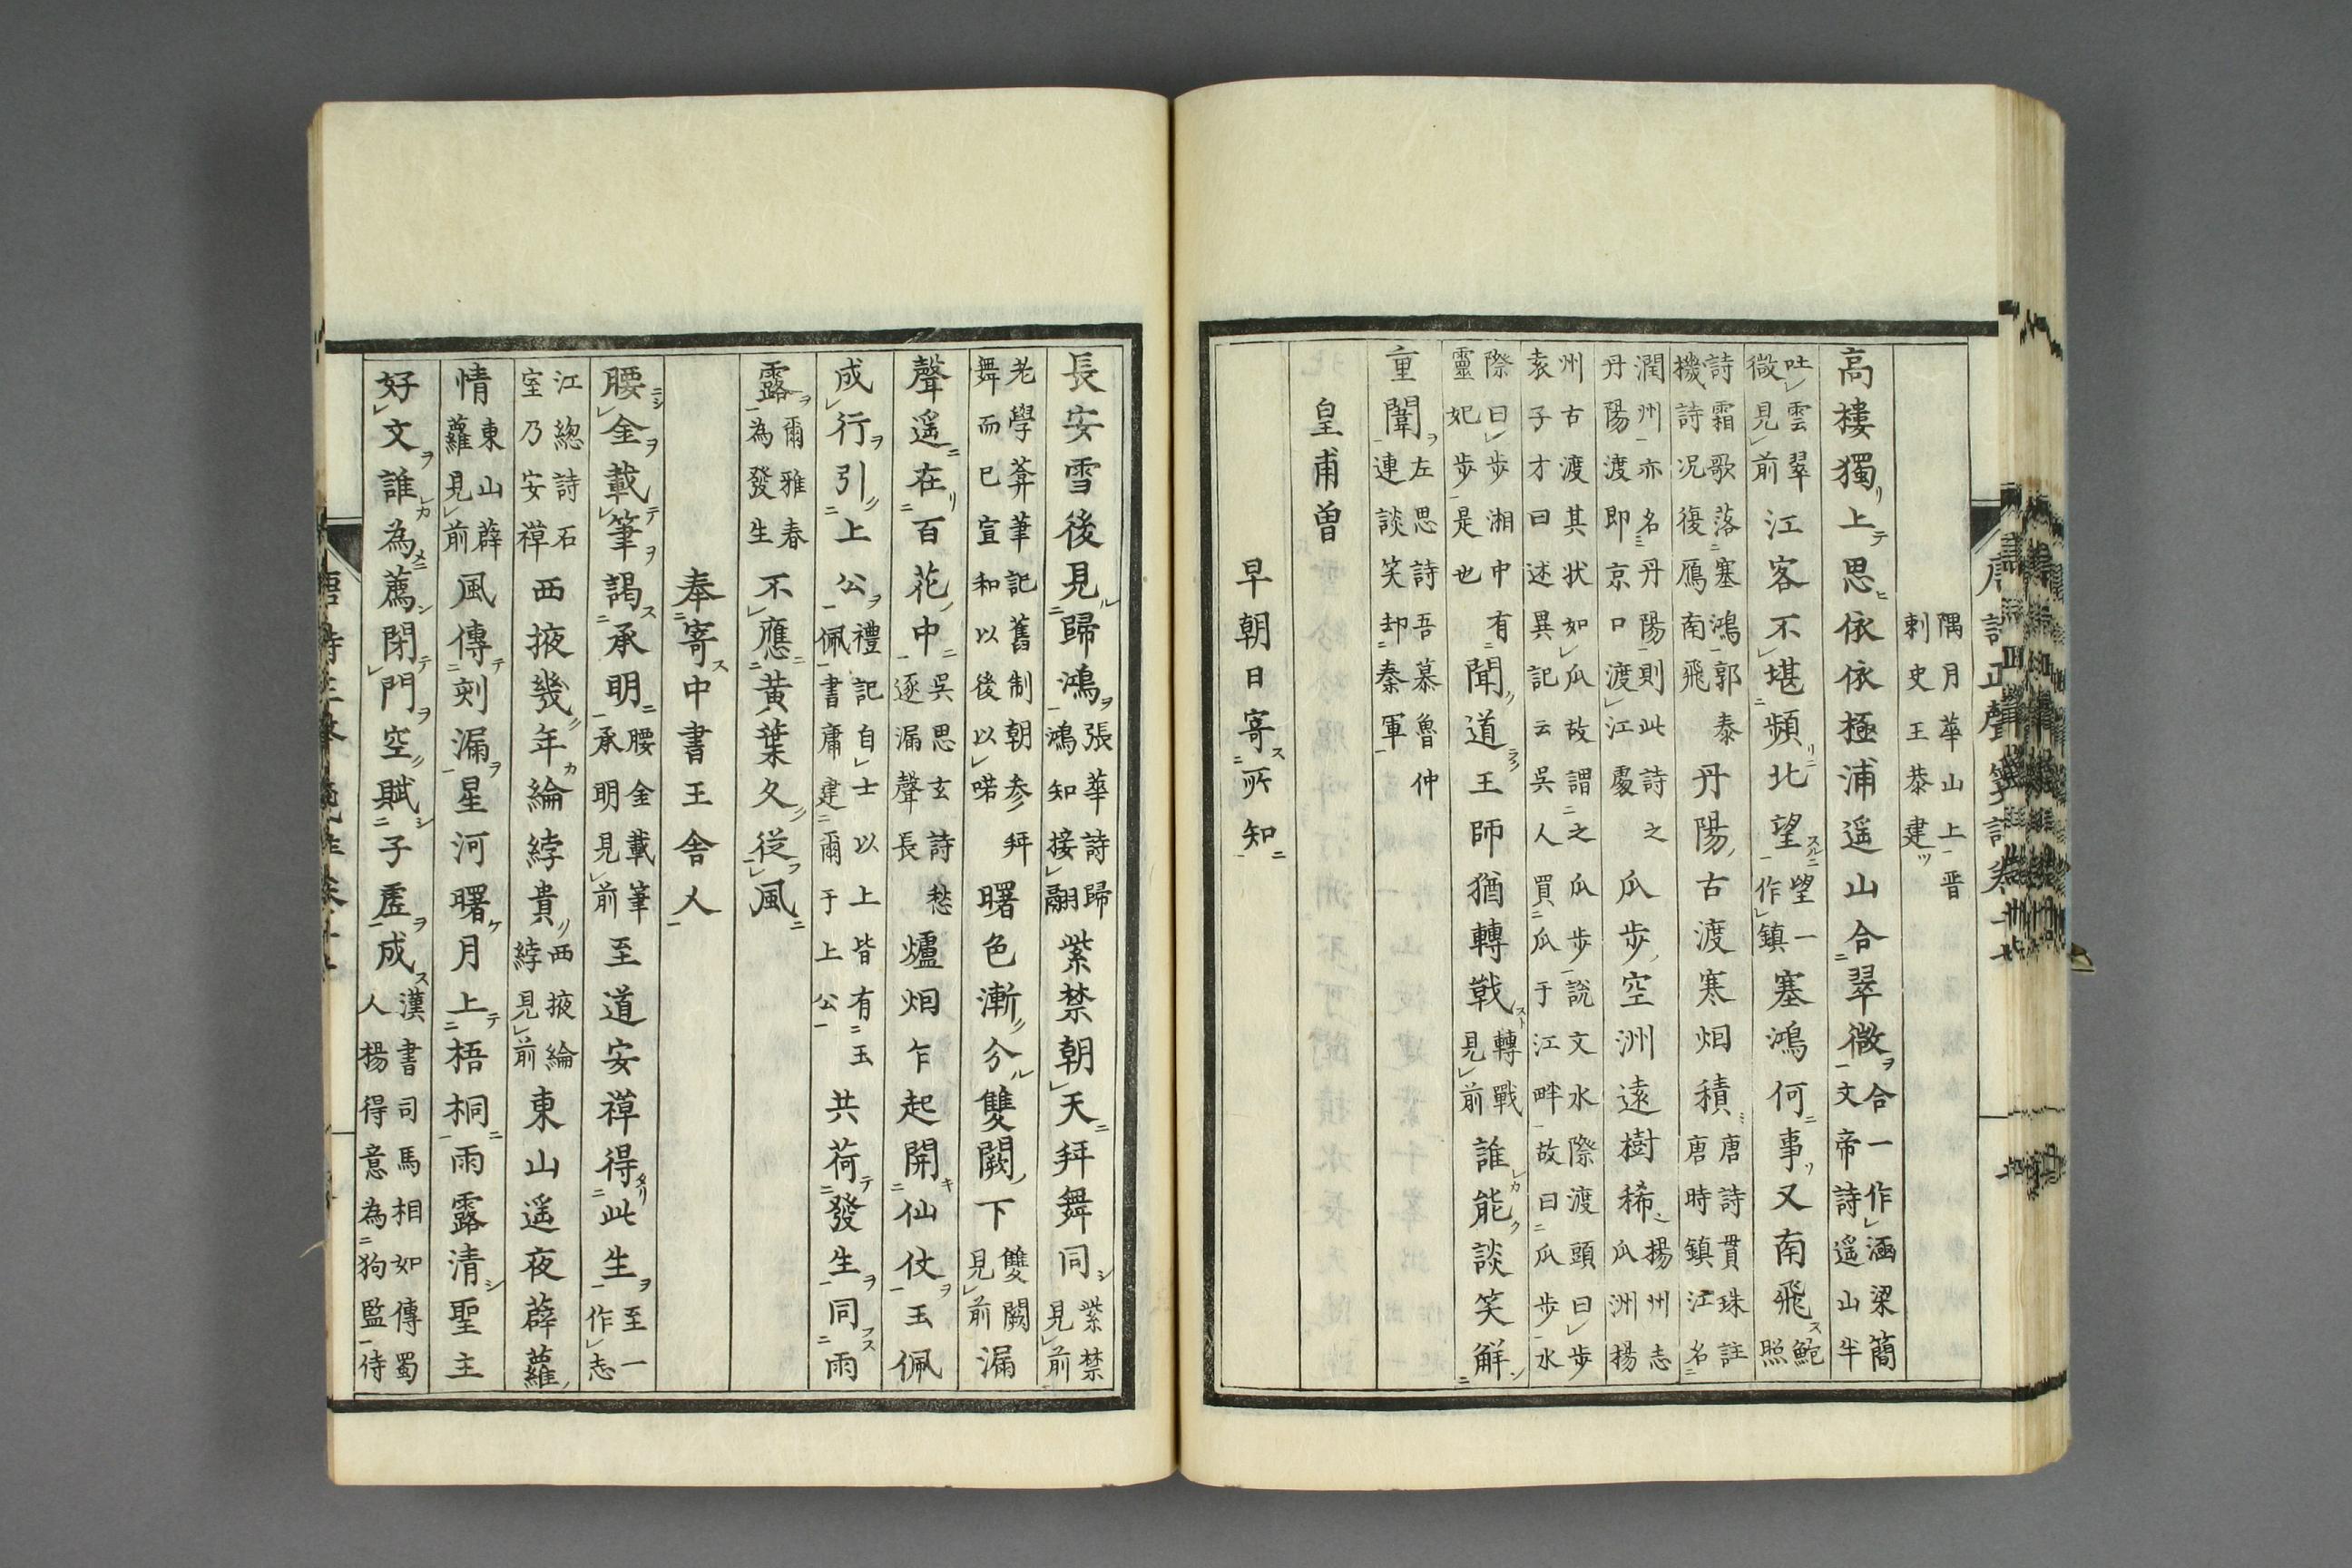 隅月華山上晋
刺史王恭建
高樓獨上思依依極浦遥山合翠微合一作涵梁簡
文帝詩遥山半
吐雲翠
微見前江客不堪頻北望望一
作鎮塞鴻何事又南飛鮑
照
詩霜歌落塞鴻郭泰
機詩況復鴈南飛丹陽古渡寒烟積唐詩貫珠註
唐時鎮江名
潤州亦名丹陽則此詩之
丹陽渡即京口渡江處瓜步空洲遠樹稀揚州志
瓜洲揚
州古渡其状如瓜故謂之瓜步說文水際渡頭曰步
袁子才曰述異記云吳人買瓜于江畔故曰瓜步水
際曰步湘中有
靈妃步是也聞道王師猶轉戰轉戰
見前誰能談笑解
重闈左思詩吾慕魯仲
連談笑却秦軍
皇甫曽
早朝日寄所知
長安雪後見歸鴻張華詩歸
鴻知接翮紫禁朝天拜舞同紫禁
見前
老學莽筆記舊制朝参拜
舞而已宣和以後以喏曙色漸分雙闕下雙闕
見前漏
聲遥在百花中吳思玄詩愁
逐漏聲長爐烟乍起開仙仗玉佩
成行引上公禮記自士以上皆有玉
佩書庸建爾于上公共荷發生同雨
露爾雅春
為發生不應黄葉久從風
奉寄中書王舍人
腰金載筆謁承明腰金載筆
承明見前至道安禅得此生至一
作志
江總詩石
室乃安禅西掖幾年綸綍貴西掖綸
綍見前東山遥夜薜蘿
情東山薜
蘿見前風傳刻漏星河曙月上梧桐雨露清聖主
好文誰為薦閉門空賦子虛成漢書司馬相如傳蜀
人揚得意為狗監侍